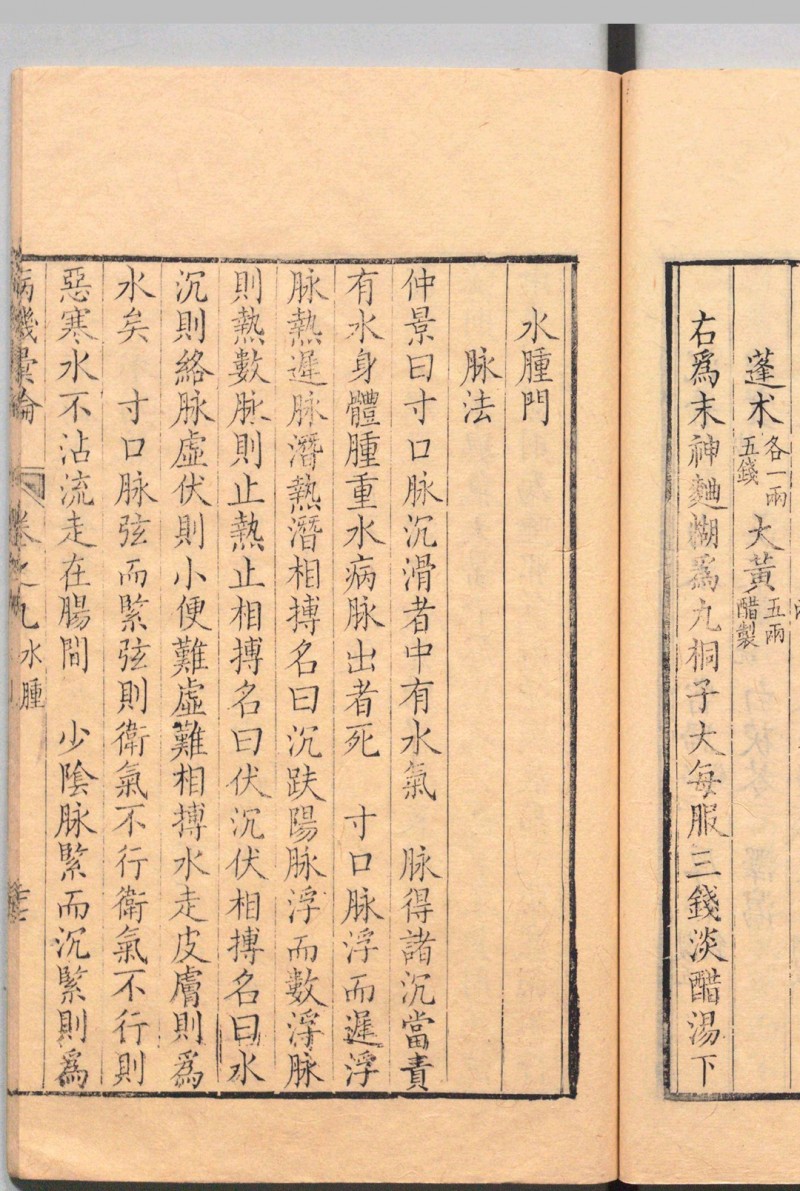 蓬术各一兩五錢 大黃五兩醋製
右爲末神麯糊爲丸桐子大每服三錢淡醋湯下
水腫門
脉法
仲景曰寸口脉沉滑者中有水氣 脉得諸沉當責
有水身體腫重水病脉出者死 寸口脉浮而遲浮
脉熱遲脉潛熱潛相搏名曰沉趺陽脉浮而數浮脉
則熱數脉則止熱止相搏名曰伏沉伏相搏名曰水
沉則絡脉虛伏則小便難虛難相搏水走皮膚則爲
水矣 寸口脉弦而緊弦則衛氣不行衛氣不行則
惡寒水不沾流走在腸間 少陰脉緊而沉緊則爲
病機彙論 卷之九 水腫